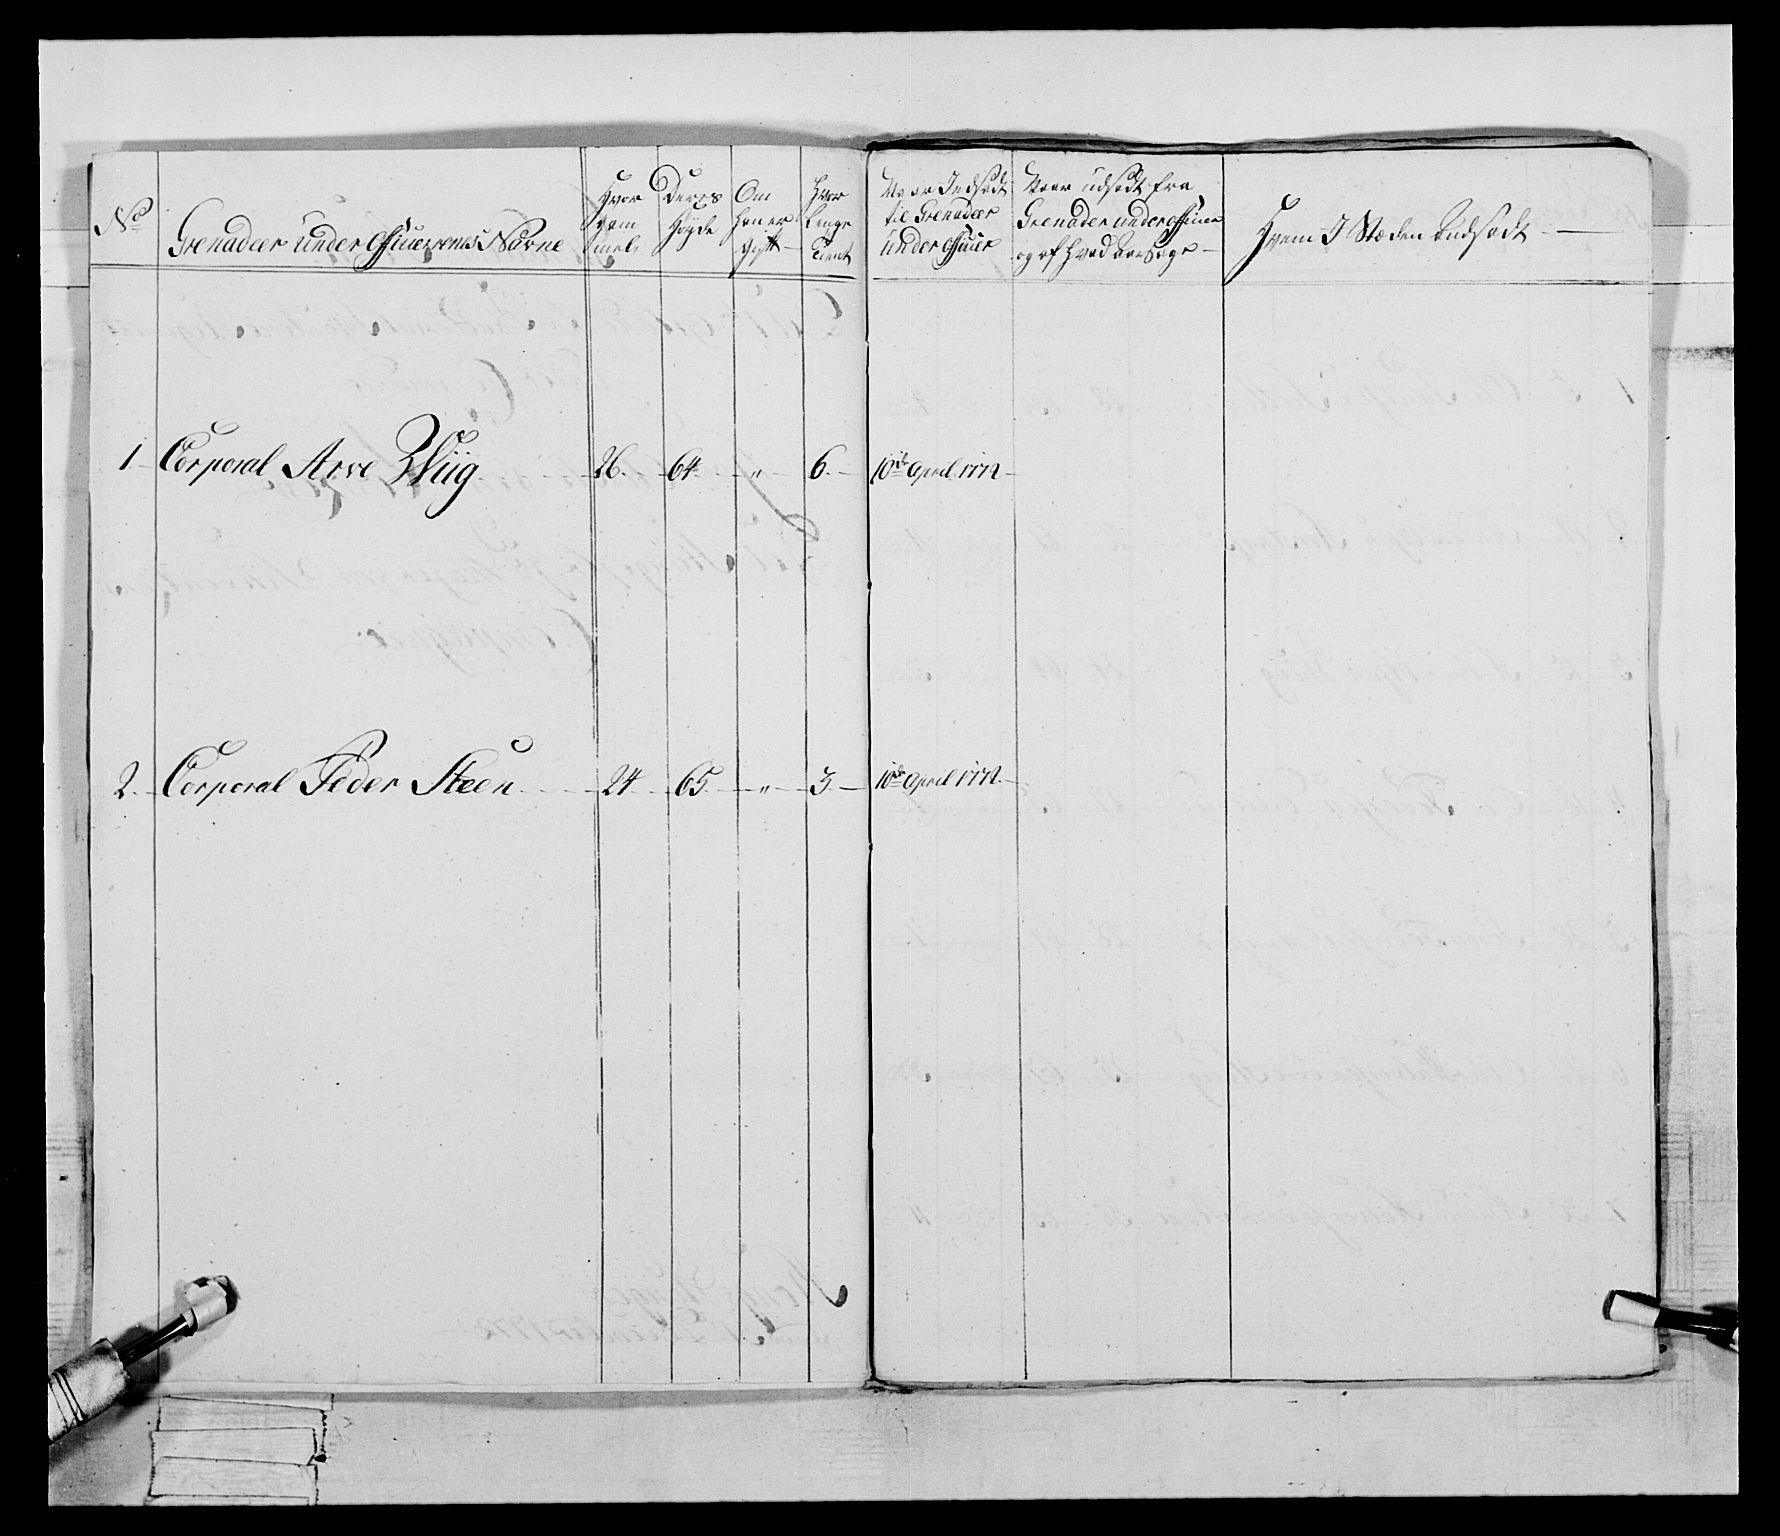 No
Grenadeer Under Officerernes Navne
Hvor
gam
mel
Deres
Høyde
Om
Han er
gift
Hvor
Længe
Tient
Naar Indsadt
til Grenadeer
Under Officier
Naar udsadt fra
Grenadeer under officier
og af Hvad Aarsage
Hvem I Stæden Indsadt
1 Corporal Arve Wiig 26. 64 " 6. 10de April 1772
2. Corporal Peder Steen 24 65. " 3. 10de April 1772.